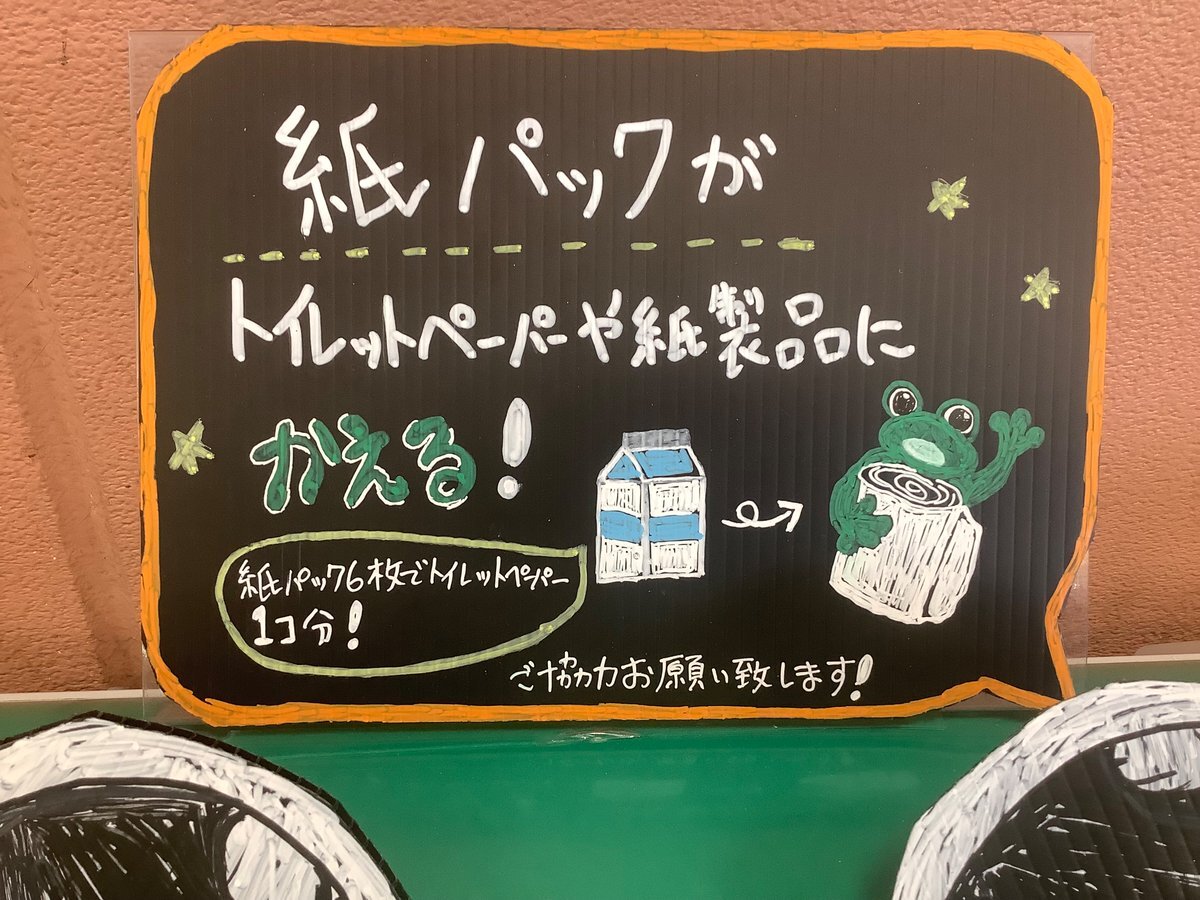 紙パックが
トイレットペーパーや紙製品に
かえる!
紙パック6枚でトイレットペーパー
1コ分!
ご協力お願い致します!